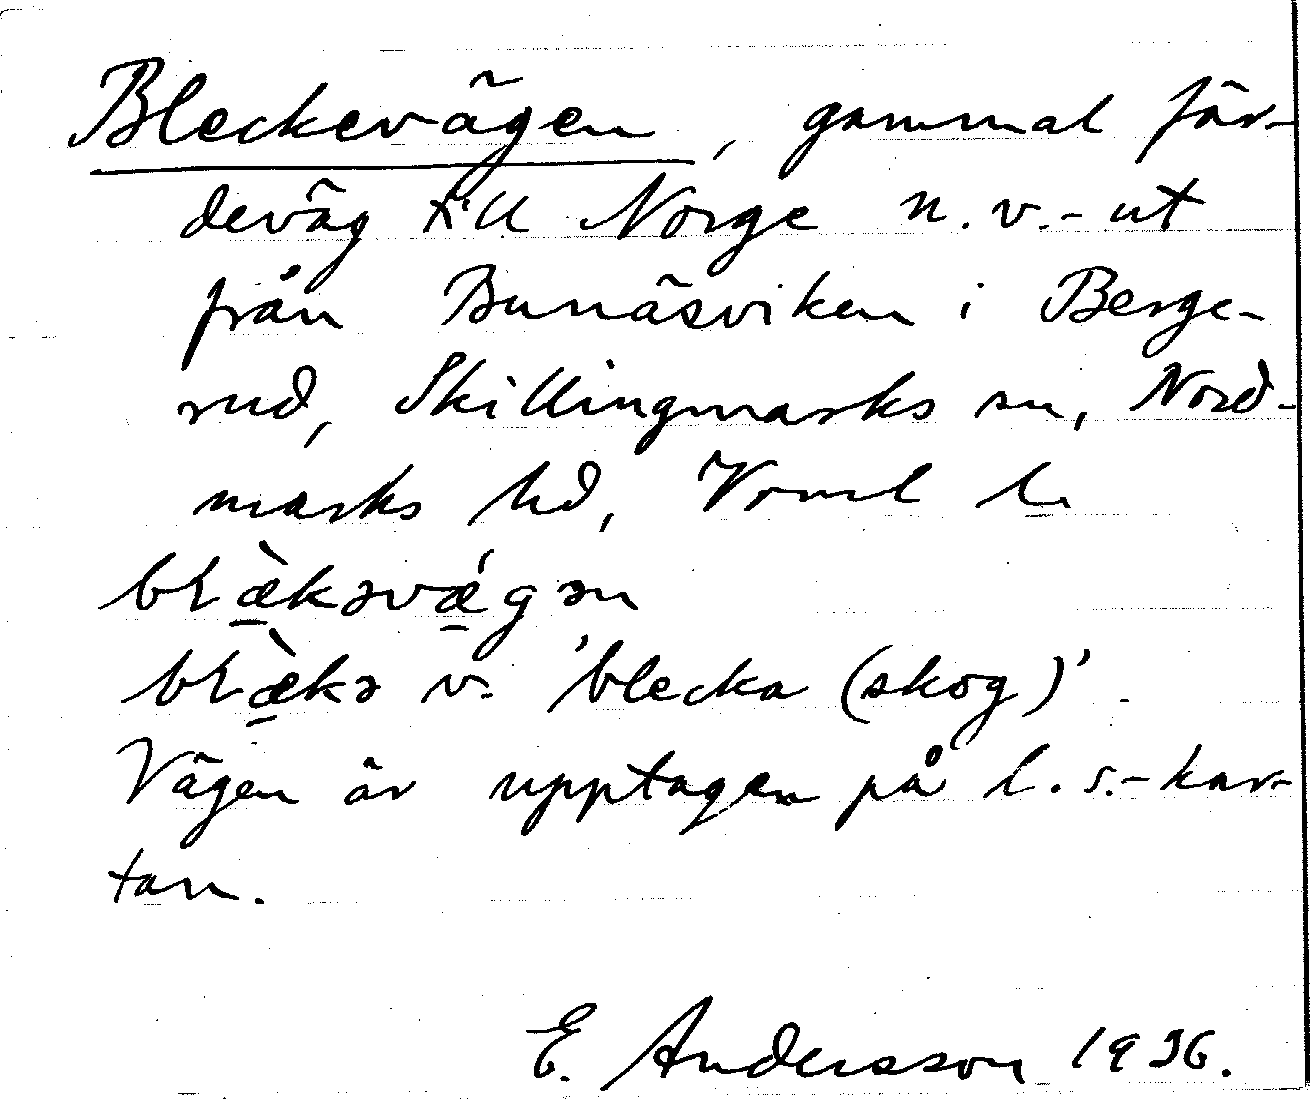 Bleckevägen, gammal fär-
deväg till Norge n.v.-ut
från Bunäsviken i Berge-
rud, Skillingmarks sn, Nord-
marks hd, Vrml l.
blæ̀kəvǽgən
blæ̀kə v. 'blecka (skog)'
Vägen är upptagen på l.s.-kar-
tan.
E. Andersson 1936.